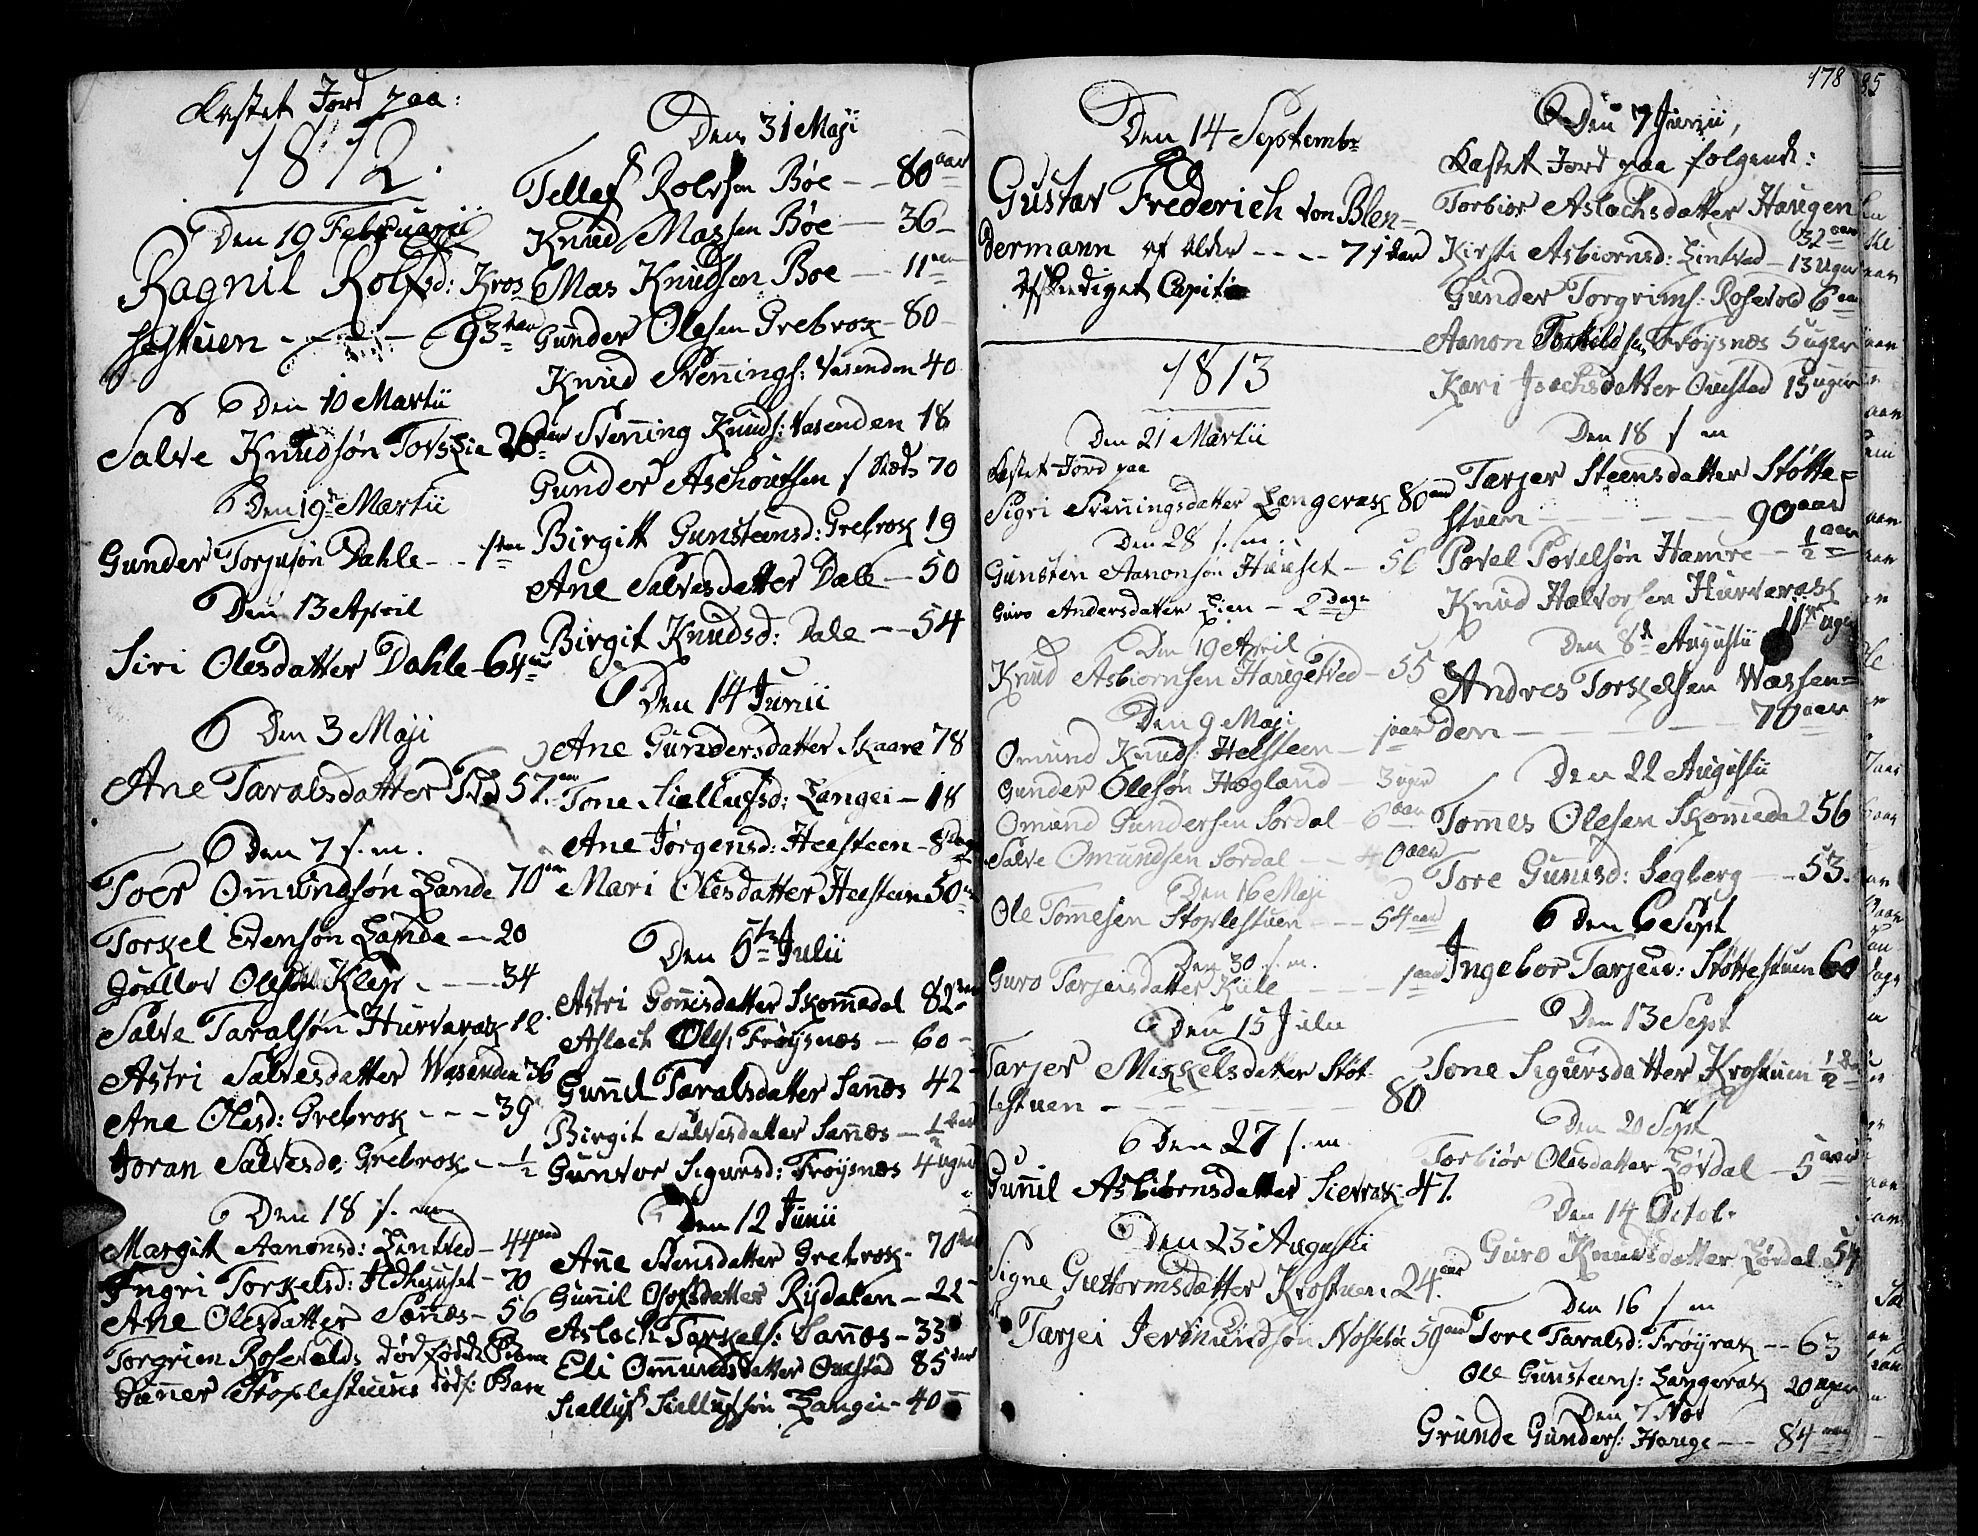 Kastet Jord paa:
1812.
Den 19 Februarii
Ragnil Rolfsd: Kros
hestuen - - - - 93 aar
Den 10 Martii
Salve Knudsøn Torskie 26 aar
Den 19de Martii
Gunder Torjusøn Dahle - - 1 aar
Den 13 April
Siri Olesdatter Dahle - 64 aar
Den 3 Maji
Ane Taralsdatter 57 aar
Den 7 s. m.
Toer Omundsøn Lande 70 aar
Torkel Evensøn Lande - 20
Gøullov Olesøn Kleje - - - 34
Salve Taralsøn Hurverak
Astri Salvesdatter Wasenden 36
Ane Olesd: Grebrok - - - 39
Joran Salvesd: Grebrok - - 1/2
Den 18 s. m.
Margit Aanonsd: Lintved - 44 aar
Ingri Torkelsd: - 70
Ane Olesdatter Sanæs - 56
Torgrim Rosevolds dødfødde Børn
Stoplestuens dødf: Barn
Den 31 Maji
Tellef Rolvsen Bøe - - 80 aar
Knud Massen Bøe - 36 -
Mas Knudsen Bøe - - 11
Gunder Olesen Grebrok - 80 -
Knud Svennings: Vasenden 40
Svenning Knuds: Vasenden 18
Gunder Aschoutsen 70
Birgitt Gunsteensd: Grebrok 19
Ane Salvesdatter Dale - 50
Birgit Knudsd: Dale - - 54
Den 14 Junii
Ane Gundersdatter Skaare 78
Tone Siellufsd: Langei - 18
Ane Jørgensd: Heesteen - 8 Dage
Mari Olesdatter Heesteen 50
Den 5te Julii
Astri Gonnisdatter Skommedal 82
Aslach Ols. Frøysnæs - 60 -
Gunnil Taralsdatter Sanæs 42
Birgit Salvesdatter Sanæs - 1/2
Guntor Sigursd: Frøysnæs 4 uger
Den 12 Junii
Anne Svensdatter Grebrok - 70
Gunnil Rysdalen - 22
Aslach Torkels: Sanæs - 33
Eli Ommundsdatter Ouestad 85
Sielluf Siellufsøn Langei - 40
Den 14 Septembr
Gustav Frederich von Blen-
dermann af Alder - - - - 71 Aar
Afskediget Capitain
1813
Den 21 Martii
Kastet Jord paa
Sigri Svenningsdatter Langerak 80 aar
Den 28 s. m.
Gunsten Aanonsøn Huuset - 56
Guro Andersdatter Lien - 2 Dage
Den 19 April
Knud Asbiornsen Haugetved - 55
Den 9 Maji
Omund Knuds: Helsteen - 1 aar
Gunder Olesøn Hægland - 3 uger
Omund Gundersen Sordal - 6 aar
Salve Omundsen Sordal - - 40 aar
Den 16 Maji
Ole Tommesen Stoplestuen - - - 54 aar
Den 30 s. m.
Guro Tarjeisdatter Kile - - - - 1 aar
Den 15 Julii
Tarjer Mikkelsdatter Støt-
testuen - - - - - - - 80
Den 27 s. m.
Gunnil Asbiørnsdatter Sierrak - 47.
Den 23 Augustii
Signe Guttormsdatter Krostuen. 24 aar
Tarjei Jermundsøn Nosebø 59 aar
178
Den 7 Junii,
Kastet Jord paa følgende:
Torbiør Aslachsdatter Haugen
32 aar
Kirsti Asbiornsd: Lintved - 13 Uger
Gunder Torgrims: Rosevold 6 aar
Aanon Torkildsen Frøysnæs 5 uger
Kari Isachsdatter Ouestad 15 uger
Den 18 s m
Tarjer Steensdatter Støtte-
stuen - - - - - 90 aar
Povel Povelsøn Hamre - 1/2 aar
Knud Halvorsen Hurverak
11 uger
Den 8de Augustii
Andres Torkelsen Wassen-
den - - - - - - - 70 aar
Den 22 Augustii
Tommes Olesen Skommedal 56
Tore Gunnisd: Segberg - - 53.
Den 6 Sept
Ingebor Tarjeid: Støttestuen 60
Den 13 Sept
Tone Sigursdatter Krostuen 1/2
Den 20 Sept
Torbiør Olesdatter Lørdal - 5 aar
Den 14 Octob.
Guro Knudsdatter Lørdal 54
Den 16 s. m
Tore Taralsd: Frøyrak - - 63
Ole Gunsteens: Langerak 20 uger
Den 7 Nov
Grunde Gunders: Hauge - - 84 aar